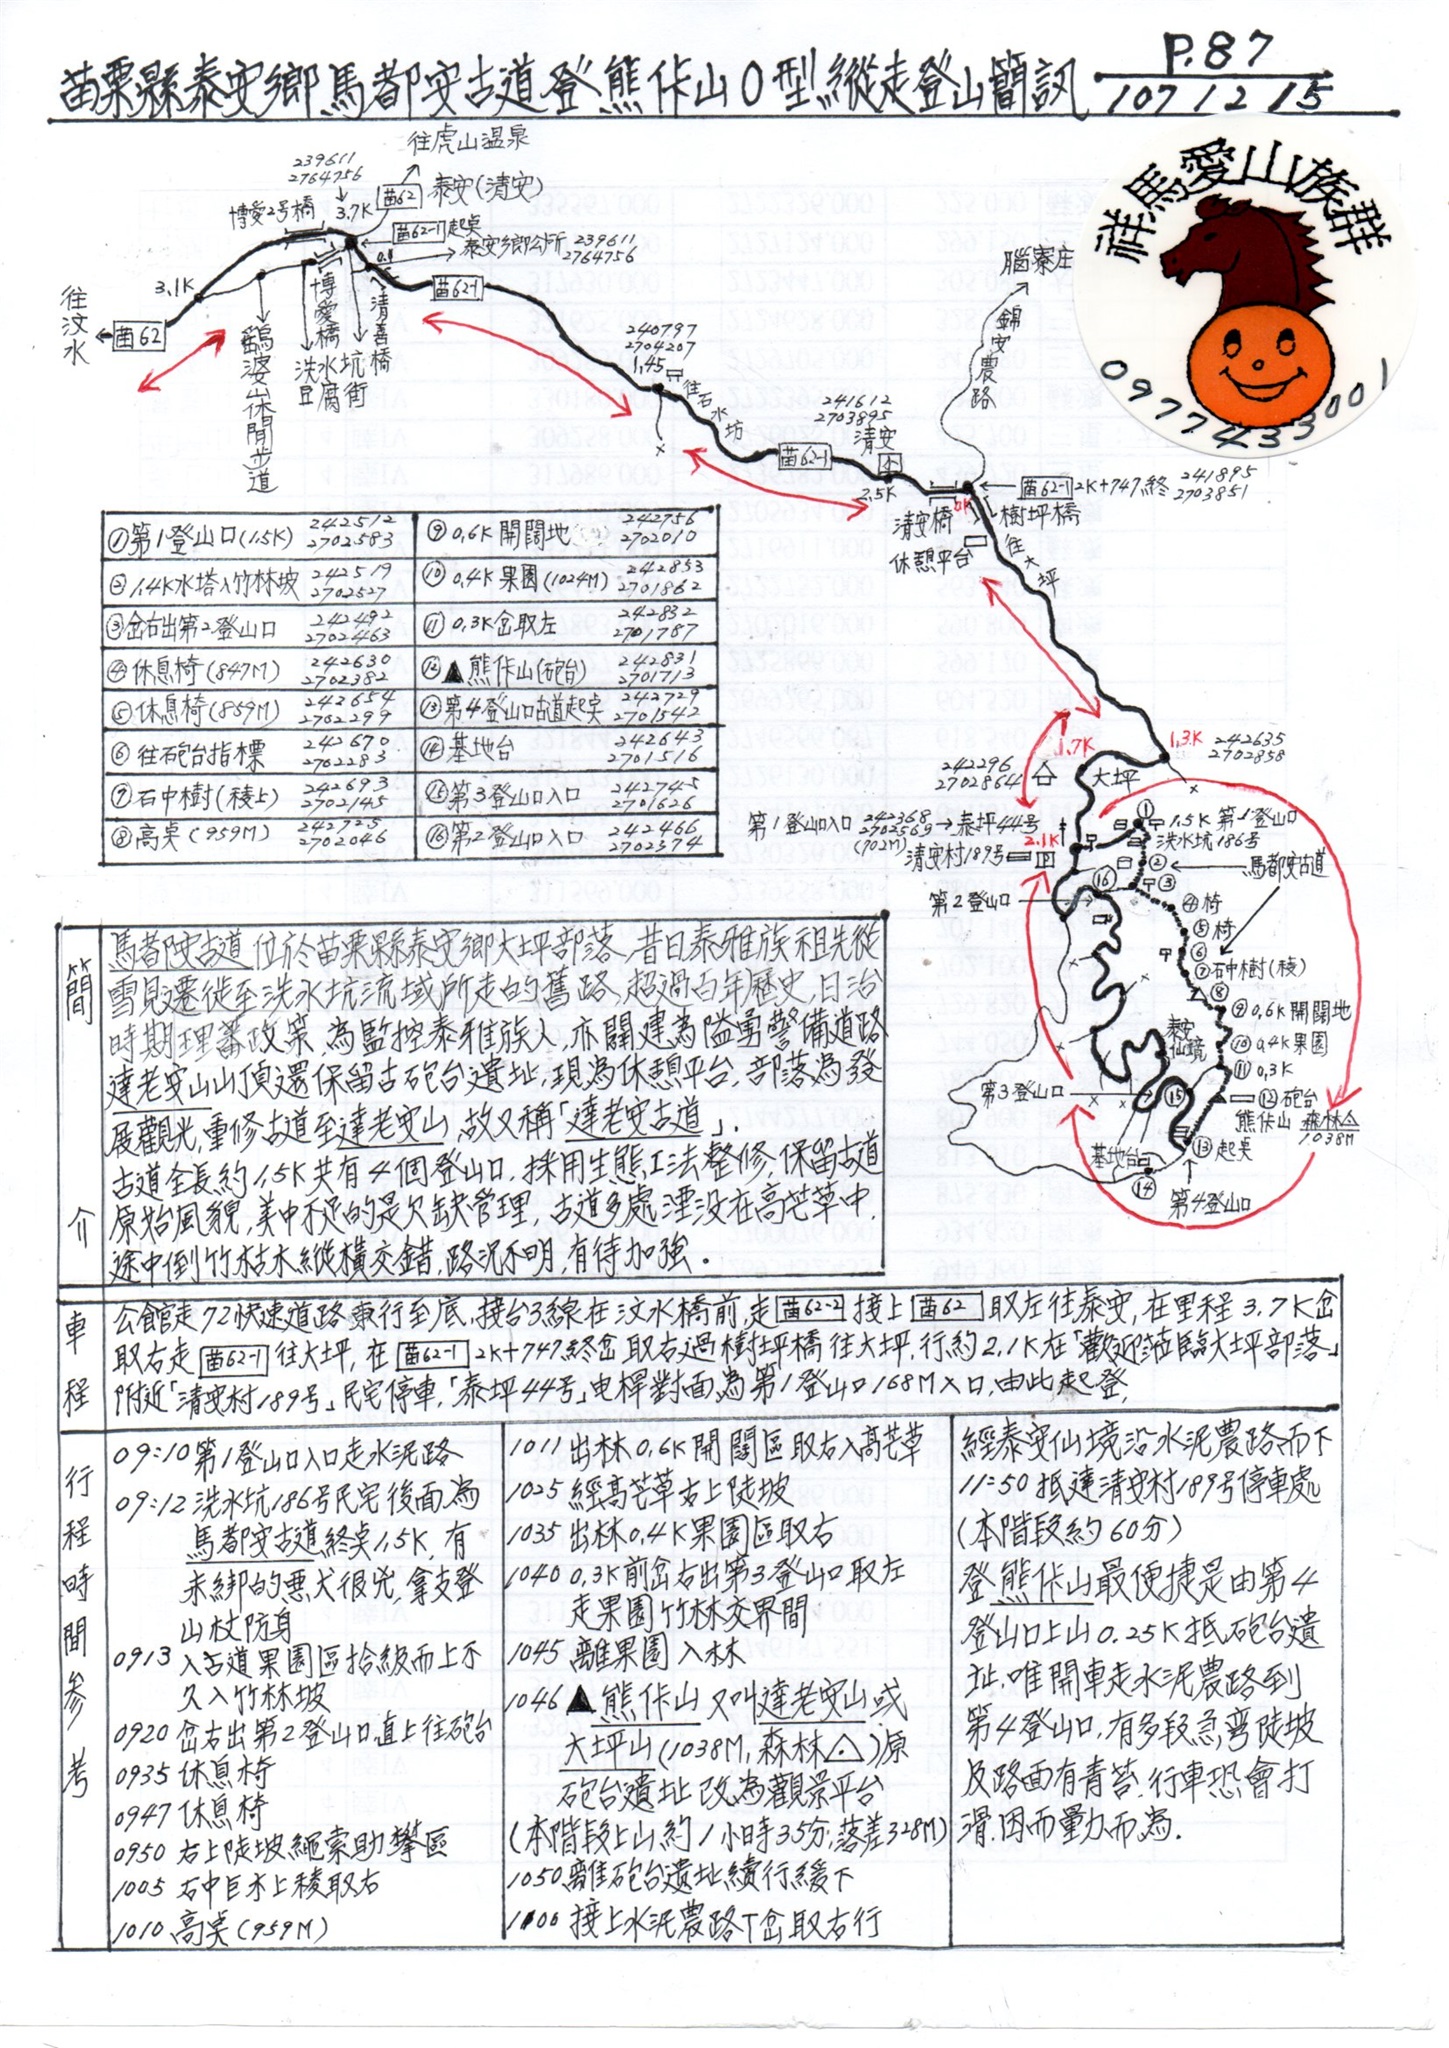 苗栗縣泰安鄉馬都安古道登熊佧山O型縱走登山簡訊
P.87
107 12 15
祥馬愛山族群
0977433001
往虎山溫泉
239611
2764756
博愛2号橋
3.7K
苗62
泰安(清安)
苗62-1 起點
泰安鄉公所 239611
2764756
0.1
3.1K
往汶水
苗62
鷂婆山休閒步道
博愛橋
洗水坑
豆腐街
清善橋
苗62-1
240797
2704207
1.45
往石水坊
241612
2703895
清安
苗62-1
2.5K
腦寮庄
錦安農路
苗62-1 2K+747終 241895
2703851
0K
清安橋
樹坪橋
休憩平台
往大坪
①第1登山口(1.5K) 242512
2702583
②1.4K水塔入竹林坡 242519
2702527
③岔右出第2登山口 242492
2702463
④休息椅(847M) 242630
2702382
⑤休息椅(859M) 242654
2702299
⑥往砲台指標 242670
2702283
⑦石中樹(稜上) 242693
2702145
⑧高點(959M) 242725
2702046
⑨0.6K開闊地 242756
2702010
⑩0.4K果園(1024M) 242853
2701862
⑪0.3K岔取左 242832
2701787
⑫▲熊佧山(砲台) 242831
2701713
⑬第4登山口古道起點 242729
2701542
⑭基地台 242643
2701516
⑮第3登山口入口 242745
2701626
⑯第2登山口入口 242466
2702374
1.7K
1.3K 242635
2702858
242296
2702864
大坪
第1登山口入口 242368
2702569 → 泰坪44号
(702M)
2.1K
清安村189号 P
① 1.5K 第1登山口
洗水坑186号
②
馬都安古道
③
⑯
第2登山口
④椅
⑤椅
⑥
⑦石中樹(稜)
⑧
⑨0.6K開闊地
⑩0.4K果園
⑪0.3K
⑫砲台
熊佧山 森林△
1038M
泰安仙境
第3登山口
⑮
⑬起點
基地台
⑭
第4登山口
簡介
馬都安古道位於苗栗縣泰安鄉大坪部落,昔日泰雅族祖先從
雪見遷徙至洗水坑流域所走的舊路,超過百年歷史,日治
時期理蕃政策,為監控泰雅族人,亦開建為隘勇警備道路
達老安山山頂還保留古砲台遺址,現為休憩平台,部落為發
展觀光,重修古道至達老安山,故又稱「達老安古道」.
古道全長約1.5K共有4個登山口,採用生態工法整修,保留古道
原始風貌,美中不足的是欠缺管理,古道多處湮沒在高芒草中,
途中倒竹枯木縱橫交錯,路況不明,有待加強。
車程
公館走72快速道路東行至底,接台3線在汶水橋前,走苗62-2接上苗62取左往泰安,在里程3.7K岔
取右走苗62-1往大坪,在苗62-1 2K+747終岔取右過樹坪橋往大坪,行約2.1K在「歡迎蒞臨大坪部落」
附近「清安村189号」民宅停車,「泰坪44号」电桿對面,為第1登山口168M入口,由此起登,
行程時間參考
09:10第1登山口入口走水泥路
09:12洗水坑186号民宅後面為
馬都安古道終點1.5K,有
未綁的惡犬很兇,拿支登
山杖防身
0913入古道果園區拾級而上不
久入竹林坡
0920岔右出第2登山口直上往砲台
0935休息椅
0947休息椅
0950右上陡坡繩索助攀區
1005石中巨木上稜取右
1010高點(959M)
1011出林0.6K開闊區取右入高芒草
1025經高芒草右上陡坡
1035出林0.4K果園區取右
1040 0.3K前岔右出第3登山口取左
走果園竹林交界間
1045離果園入林
1046▲熊佧山又叫達老安山或
大坪山(1038M,森林△)原
砲台遺址改為觀景平台
(本階段上山約1小時35分,落差328M)
1050離砲台遺址續行緩下
1100接上水泥農路T岔取右行
經泰安仙境沿水泥農路而下
11:50抵達清安村189号停車處
(本階段約60分)
登熊佧山最便捷是由第4
登山口上山0.25K抵砲台遺
址.唯開車走水泥農路到
第4登山口,有多段急彎陡坡
及路面有青苔.行車恐會打
滑.因而量力而為.